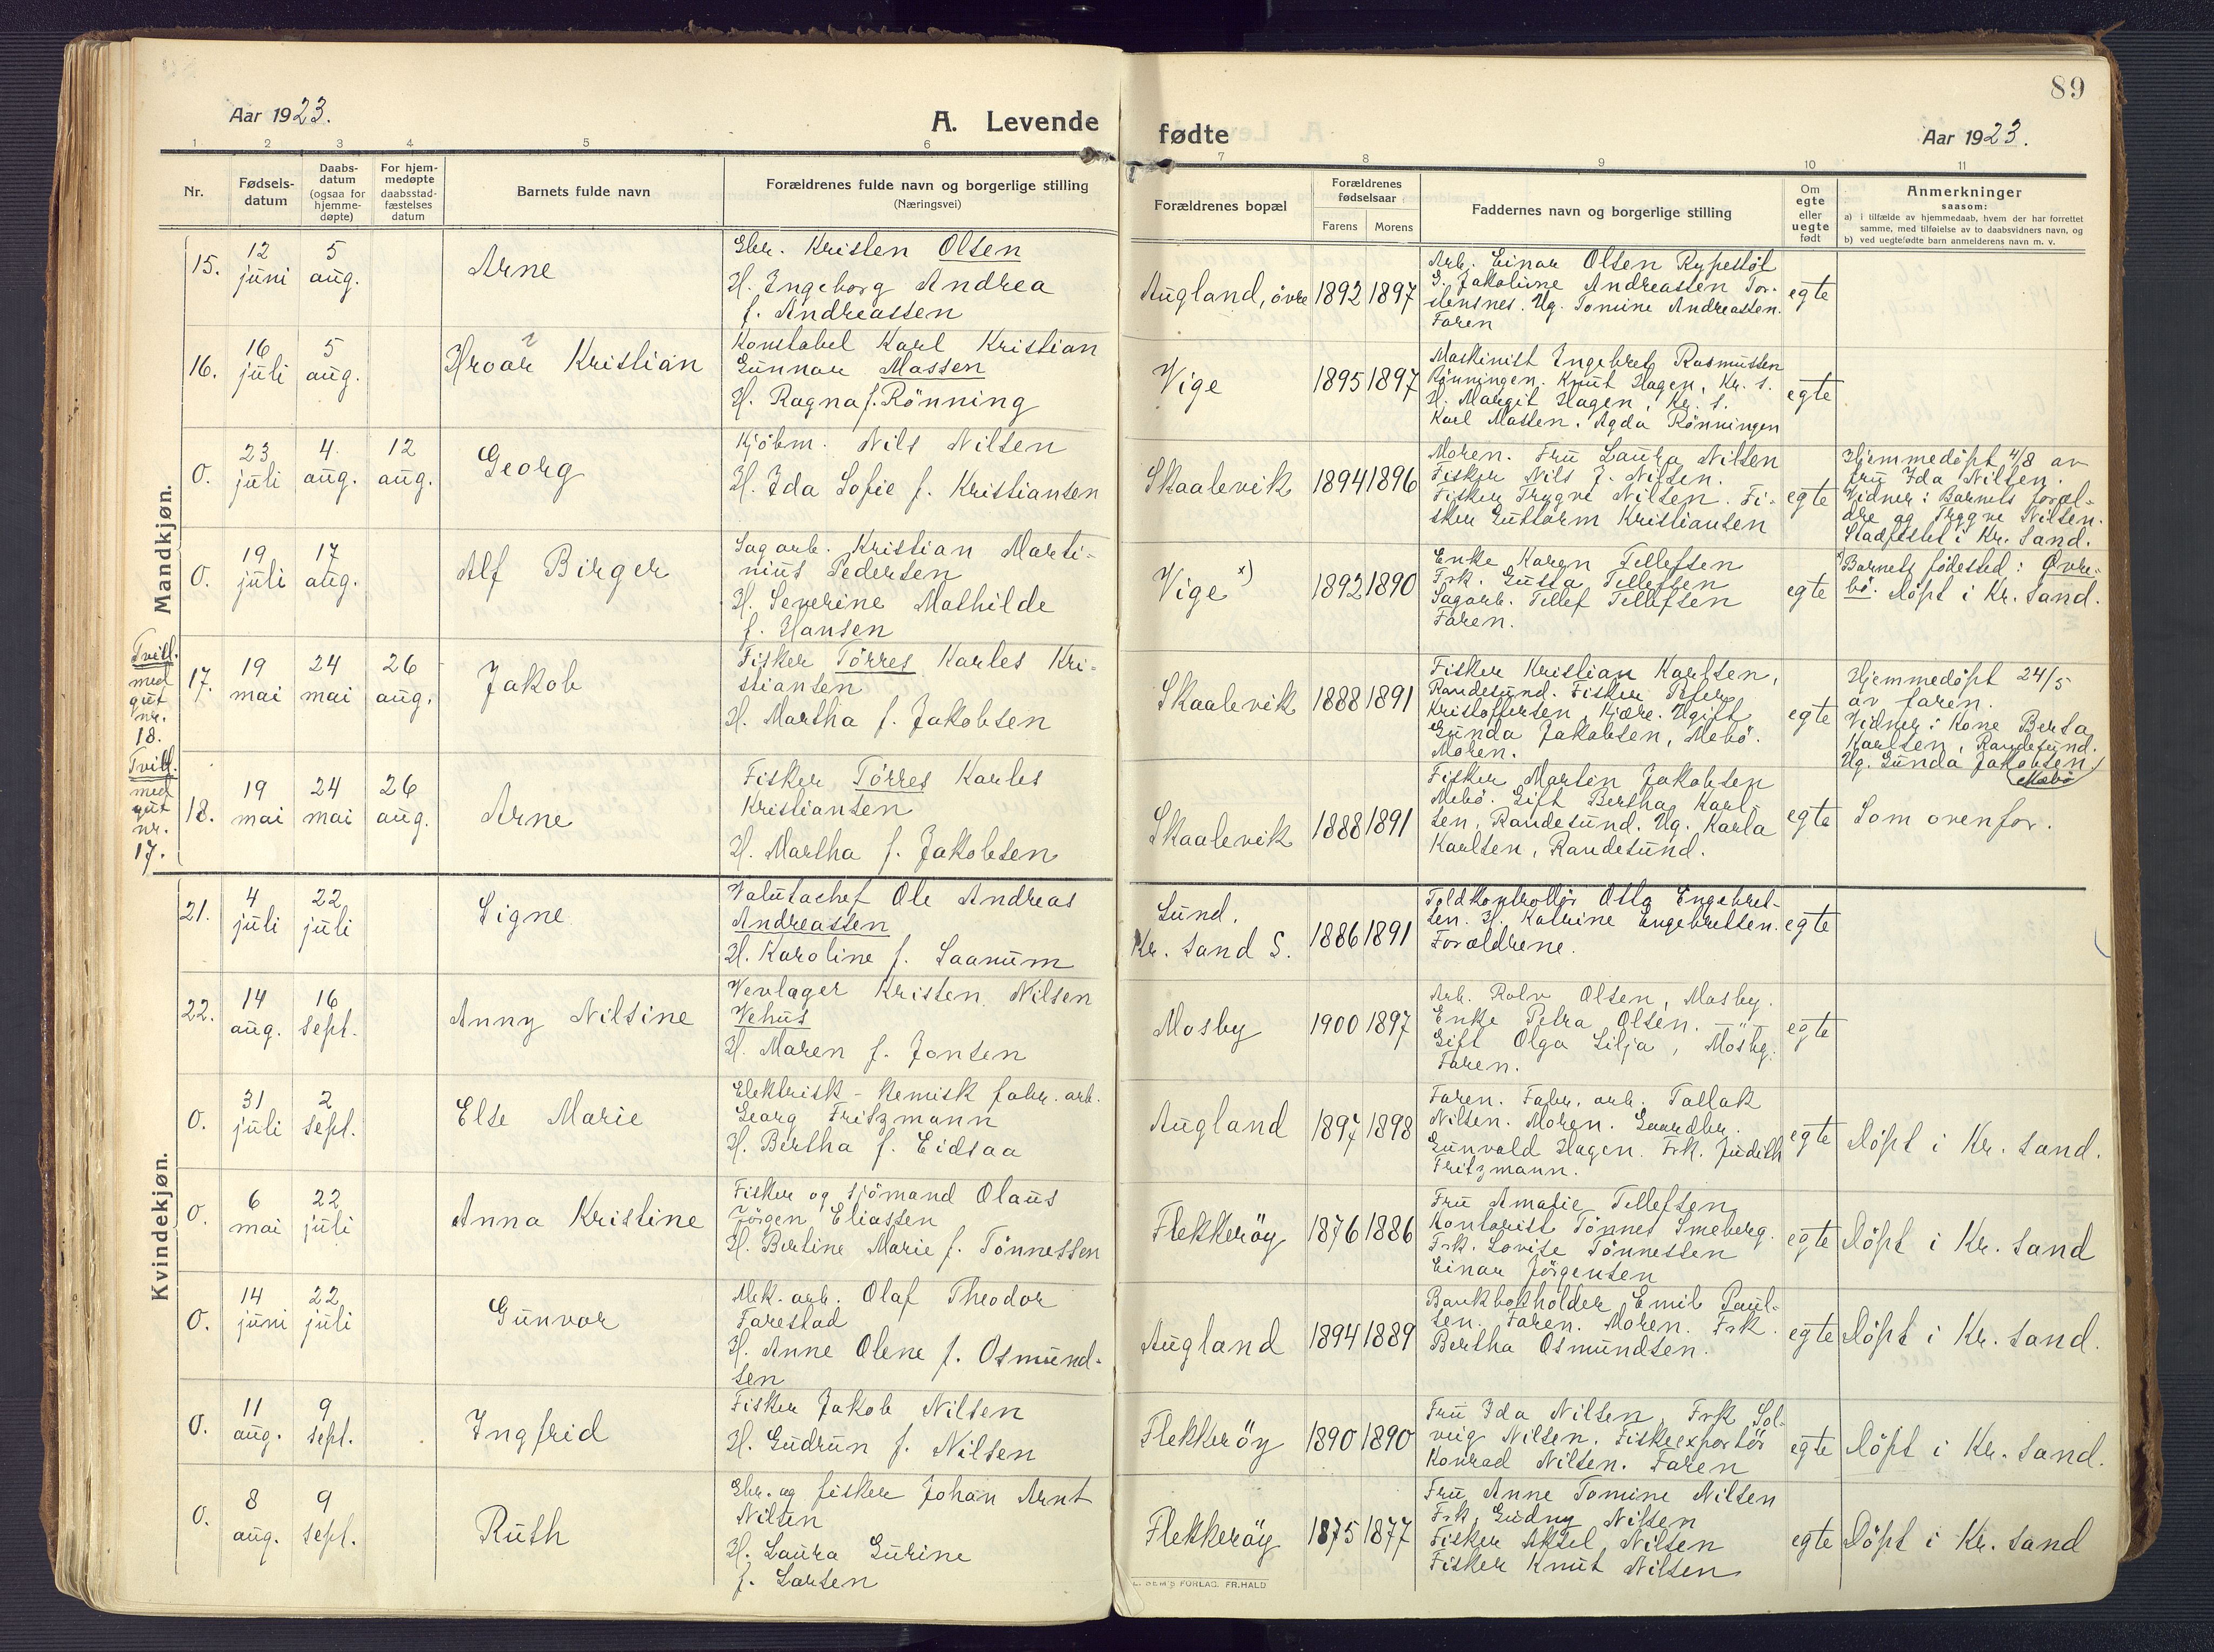 89
Aar 1923.
A. Levende
fødte
Aar 1923.
1 2 3 4 5 6
7 8 9 10 11
Nr.
Fødsels-
datum
Daabs-
datum
(ogsaa for
hjemme-
døpte)
For hjem-
medøpte
daabsstad-
fæstelses
datum
Barnets fulde navn
Forældrenes fulde navn og borgerlige stilling
(Næringsvei)
Forældrenes bopæl
Forældrenes
fødselsaar
Farens Morens
Faddernes navn og borgerlige stilling
Om
egte
eller
uegte
født
Anmerkninger
saasom:
a) i tilfælde av hjemmedaab, hvem der har forrettet
samme, med tilføielse av to daabsvidners navn, og
b) ved uegtefødte barn anmelderens navn m. v.
Mandkjøn.
15.
12
juni
5
aug.
Arne
Gbr. Kristen Olsen
H. Ingeborg Andrea
f. Andreassen
Augland, övre
1892 1897
Arb. Einar Olsen Rypestöl
G. Jakobine Andreassen Tor-
stensnes. Ug. Tomine Andreassen.
Faren
egte
16.
16
juli
5
aug.
Hroar Kristian
Konstabel Karl Kristian
Gunnar Massen
H. Ragna f. Rönning
Vige
1895 1897
Maskinist Ingebret Rasmussen
Rönningen. Knut Hagen, Kr. s.
H. Margit Hagen, Kr. s.
Karl Massen. Agda Rönningen
egte
0.
23
juli
4.
aug.
12
aug.
Georg
Kjöbm. Nils Nilsen
H. Ida Sofie f. Kristiansen
Skaalevik
1894 1896
Moren. Fru Laura Nilsen
Fisker Nils J. Nilsen.
Fisker Trygve Nilsen. Fi-
sker Guttorm Kristiansen
egte
Hjemmedöpt 4/8 av
fru Ida Nilsen.
Vidner: Barnets foræl-
dre og Trygve Nilsen.
Stadfestet i Kr. sand.
0.
19
juli
17
aug.
Alf Birger
Sagarb. Kristian Marti-
nius Pedersen
H. Severine Mathilde
f. Hansen
Vige x)
1892 1890
Enke Karen Tellefsen
Frk. Gusta Tellefsen
Sagarb. Tellef Tellefsen
Faren.
egte
x) Barnets födested: Øvre-
bö. Döpt i Kr. sand.
Tvill.
med
gut
nr.
18.
17.
19
mai
24
mai
26
aug.
Jakob
Fisker Törres Karles Kri-
stiansen
H. Martha f. Jakobsen
Skaalevik
1888 1891
Fisker Kristian Karlsen,
Randesund. Fisker Peter
Kristoffersen, Kjære. Ugift
Gunda Jakobsen, Mebö.
Moren.
egte
Hjemmedöpt 24/5
av faren.
Vidner: Kone Berta
Karlsen, Randesund.
Ug. Gunda Jakobsen,
Mebö
Tvill.
med
gut
nr.
17.
18.
19
mai
24
mai
26
aug.
Arne
Fisker Törres Karles
Kristiansen
H. Martha f. Jakobsen
Skaalevik
1888 1891
Fisker Marten Jakobsen
Mebö. Gift Bertha Karl-
sen, Randesund. Ug. Karla
Karlsen, Randesund.
egte
Som ovenfor.
Kvindekjøn.
21.
4
juli
22
juli
Signe
Valutachef Ole Andreas
Andreassen
H. Karoline f. Saanum
Lund.
Kr. sand S.
1886 1891
Toldkontrollör Otto Engebret-
sen. H. Katrine Engebretsen.
Forældrene.
egte
22.
14
aug.
16
sept.
Anny Nilsine
Vevlager Kristen Nilsen
Vehus
H. Maren f. Jonsen
Mosby
1900 1897
Arb. Rolv Olsen, Mosby.
Enke Petra Olsen. —"—
Gift Olga Lilja, Mosby.
Faren.
egte
0.
31
juli
2
sept.
Else Marie
Elektrisk-kemisk fabr. arb.
Georg Fritzmann
H. Bertha f. Eidsaa
Augland
1897 1898
Faren. Fabr. arb. Tallak
Nilsen. Moren. Gaardbr.
Gunvald Hagen. Frk. Judith
Fritzmann.
egte
Döpt i Kr. sand.
0.
6
mai
22
juli
Anna Kristine
Fisker og sjömand Olaus
Jörgen Eliassen
H. Bertine Marie f. Tönnessen
Flekkeröy
1876 1886
Fru Amalie Tellefsen
Kontorist Tönnes Smeberg.
Frk. Lovise Tönnessen
Einar Jörgensen
egte
Döpt i Kr. sand
0.
14
juni
22
juli
Gunvor
Mek. arb. Olaf Theodor
Farestad
H. Anne Olene f. Osmund-
sen
Augland
1894 1889
Bankbokholder Emil Paul-
sen. Faren. Moren. Frk.
Bertha Osmundsen.
egte
Döpt i Kr. sand.
0.
11
aug.
9
sept.
Ingfrid
Fisker Jakob Nilsen
H. Gudrun f. Nilsen
Flekkeröy
1890 1890
Fru Ida Nilsen, Frk Sol-
veig Nilsen. Fiskeexportör
Konrad Nilsen. Faren
egte
Döpt i Kr. sand.
0.
8
aug.
9
sept.
Ruth
Gbr. og fisker Johan Arnt
Nilsen
H. Laura Gurine
f. Larsen
Flekkeröy
1875 1877
Fru Anne Tomine Nilsen
Frk. Gudny Nilsen
Fisker Aksel Nilsen
Fisker Knut Nilsen
egte
Döpt i Kr. sand
FORLAG. FR.HALD